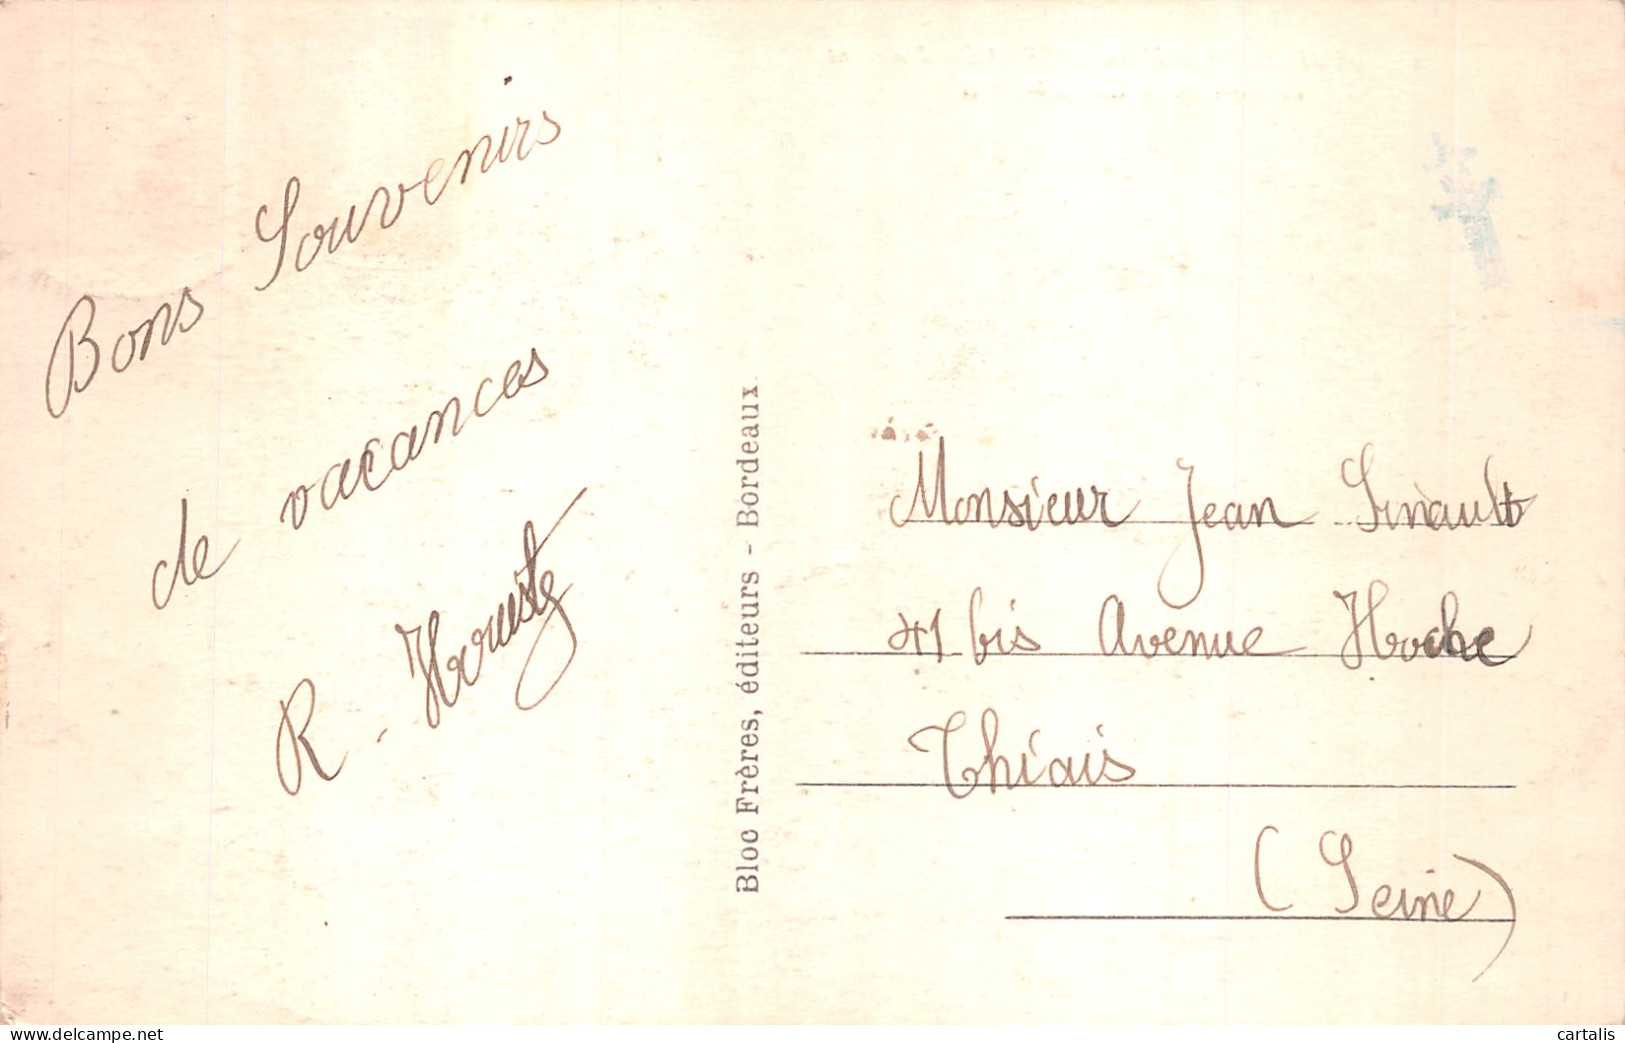 Bons Souvenirs
de vacances
R. 
Bloc Frères, éditeurs - Bordeaux
Monsieur Jean Sinault
41 bis Avenue Hoche
Thiais
(Seine)
www.delcampe.net
cartalis